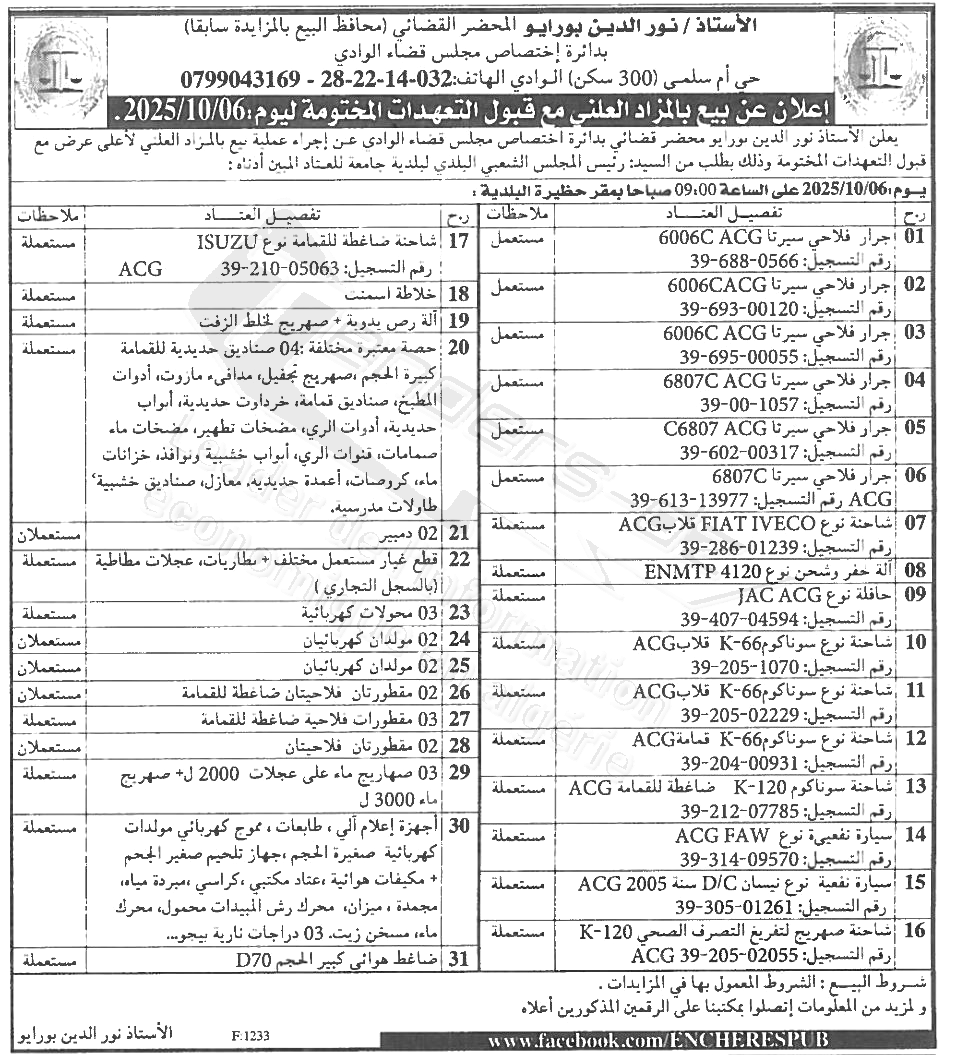 الأستاذ/ نور الدين بورايو المحضر القضائي (محافظ البيع بالمزايدة سابقا)
بدائرة إختصاص مجلس قضاء الوادي
حي أم سلمى (300 سكن) الوادي الهاتف:032-14-22-28 - 0799043169
إعلان عن بيع بالمزاد العلني مع قبول التعهدات المختومة ليوم:2025/10/06.
يعلن الأستاذ نور الدين بورايو محضر قضائي بدائرة اختصاص مجلس قضاء الوادي عن إجراء عملية بيع بالمزاد العلني لأعلى عرض مع
قبول التعهدات المختومة وذلك بطلب من السيد: رئيس المجلس الشعبي البلدي لبلدية جامعة للعتاد المبين أدناه :
يـوم:2025/10/06 على الساعة 09:00 صباحا بمقر حظيرة البلدية :
ر.ح تفصيل العتـــاد ملاحظات
01 جرار فلاحي سيرتا 6006C ACG مستعمل
رقم التسجيل: 39-688-0566
02 جرار فلاحي سيرتا 6006CACG مستعمل
رقم التسجيل: 39-693-00120
03 جرار فلاحي سيرتا 6006C ACG مستعمل
رقم التسجيل: 39-695-00055
04 جرار فلاحي سيرتا 6807C ACG مستعمل
رقم التسجيل: 39-00-1057
05 جرار فلاحي سيرتا C6807 ACG مستعمل
رقم التسجيل: 39-602-00317
06 جرار فلاحي سيرتا 6807C مستعمل
ACG رقم التسجيل: 39-613-13977
07 شاحنة نوع FIAT IVECO قلابACG مستعملة
رقم التسجيل: 39-286-01239
08 آلة حفر وشحن نوع ENMTP 4120 مستعملة
09 حافلة نوع JAC ACG مستعملة
رقم التسجيل: 39-407-04594
10 شاحنة نوع سوناكومK-66 قلابACG مستعملة
رقم التسجيل: 39-205-1070
11 شاحنة نوع سوناكومK-66 قلابACG مستعملة
رقم التسجيل: 39-205-02229
12 شاحنة نوع سوناكومK-66 قمامةACG مستعملة
رقم التسجيل: 39-204-00931
13 شاحنة سوناكوم K-120 ضاغطة للقمامة ACG مستعملة
رقم التسجيل: 39-212-07785
14 سيارة نفعيية نوع ACG FAW مستعملة
رقم التسجيل: 39-314-09570
15 سيارة نفعية نوع نيسان D/C سنة 2005 ACG مستعملة
رقم التسجيل: 39-305-01261
16 شاحنة صهريج لتفريغ التصرف الصحي K-120 مستعملة
رقم التسجيل: 39-205-02055 ACG
ر.ح تفصيل العتـــاد ملاحظات
17 شاحنة ضاغطة للقمامة نوع ISUZU مستعملة
رقم التسجيل: 39-210-05063 ACG
18 خلاطة اسمنت مستعملة
19 آلة رص يدوية + صهريج لخلط الزفت مستعملة
20 حصة معتبرة مختلفة :04 صناديق حديدية للقمامة مستعملة
كبيرة الحجم ،صهريج تجفيل، مدافىء مازوت، أدوات
المطبخ، صناديق قمامة، خرداوت حديدية، أبواب
حديدية، أدوات الري، مضخات تطهير، مضخات ماء
صمامات، قنوات الري، أبواب خشبية ونوافذ، خزانات
ماء، كروصات، أعمدة حديدية، معازل، صناديق خشبية،
طاولات مدرسية.
21 02 دمبير مستعملان
22 قطع غيار مستعمل مختلف + بطاريات، عجلات مطاطية مستعملة
(بالسجل التجاري )
23 03 محولات كهربائية مستعملة
24 02 مولدان كهربائيان مستعملان
25 02 مولدان كهربائيان مستعملان
26 02 مقطورتان فلاحيتان ضاغطة للقمامة مستعملان
27 03 مقطورات فلاحية ضاغطة للقمامة مستعملة
28 02 مقطورتان فلاحيتان مستعملان
29 03 صهاريج ماء على عجلات 2000 ل+ صهريج مستعملة
ماء 3000 ل
30 أجهزة إعلام آلي ، طابعات ، مموج كهربائي مولدات مستعملة
كهربائية صغيرة الحجم ،جهاز تلحيم صغير الحجم
+ مكيفات هوائية ،عتاد مكتبي ،كراسي ،مبردة مياه،
مجمدة ، ميزان، محرك رش المبيدات محمول، محرك
ماء، مسخن زيت. 03 دراجات نارية بيجو...
31 ضاغط هوائي كبير الحجم D70 مستعملة
شـروط البيـع : الشروط المعمول بها في المزايدات .
و لمزيد من المعلومات إتصلوا بمكتبنا على الرقمين المذكورين أعلاه
www.facebook.com/ENCHERESPUB F:1233 الأستاذ نور الدين بورايو